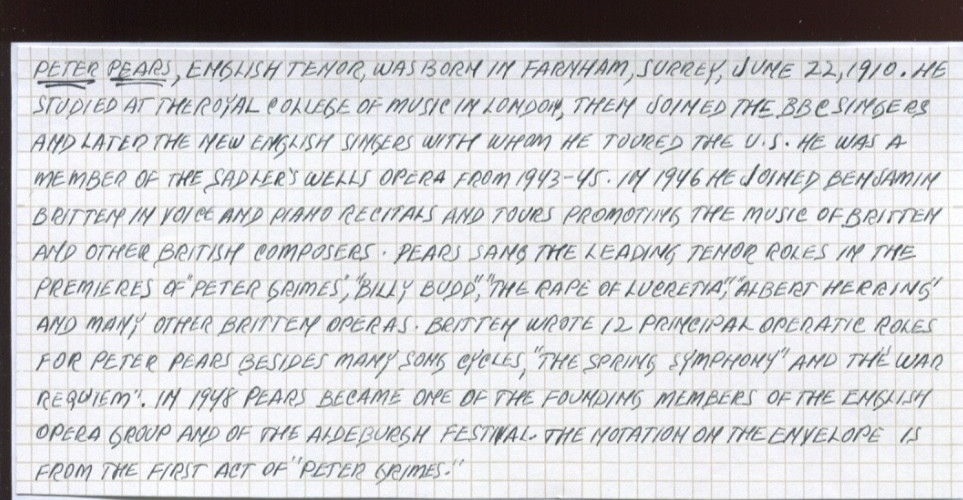 PETER PEARS, ENGLISH TENOR, WAS BORN IN FARNHAM, SURREY, JUNE 22, 1910. HE
STUDIED AT THE ROYAL COLLEGE OF MUSIC IN LONDON, THEN JOINED THE BBC SINGERS
AND LATER THE NEW ENGLISH SINGERS WITH WHOM HE TOURED THE U.S. HE WAS A
MEMBER OF THE SADLER'S WELLS OPERA FROM 1943-45. IN 1946 HE JOINED BENJAMIN
BRITTEN IN VOICE AND PIANO RECITALS AND TOURS PROMOTING THE MUSIC OF BRITTEN
AND OTHER BRITISH COMPOSERS. PEARS SANG THE LEADING TENOR ROLES IN THE
PREMIERES OF "PETER GRIMES", "BILLY BUDD", "THE RAPE OF LUCRETIA", "ALBERT HERRING"
AND MANY OTHER BRITTEN OPERAS. BRITTEN WROTE 12 PRINCIPAL OPERATIC ROLES
FOR PETER PEARS BESIDES MANY SONG CYCLES, "THE SPRING SYMPHONY" AND THE "WAR
REQUIEM". IN 1948 PEARS BECAME ONE OF THE FOUNDING MEMBERS OF THE ENGLISH
OPERA GROUP AND OF THE ALDEBURGH FESTIVAL. THE NOTATION ON THE ENVELOPE IS
FROM THE FIRST ACT OF "PETER GRIMES."